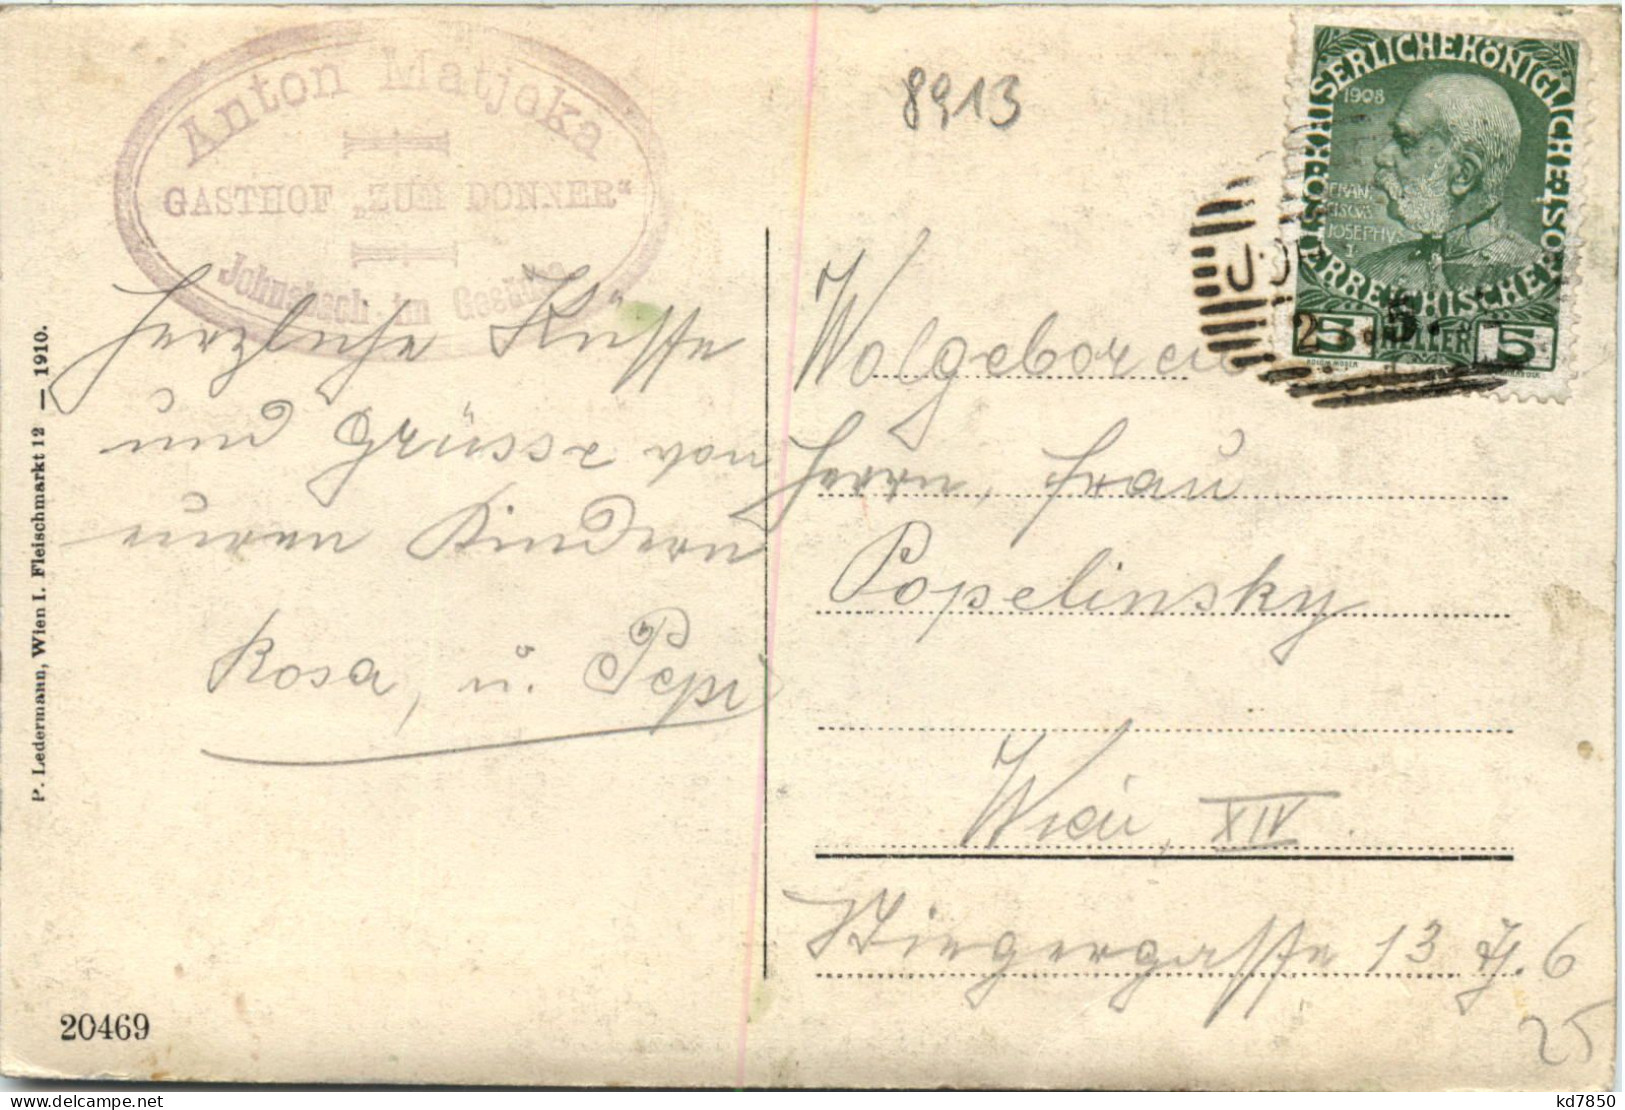 Anton Matjeka
GASTHOF „ZUM DONNER"
Johnsbach im Gesäuse
8913
KAISERLICHE KÖNIGLICHE
ÖSTERREICHISCHE
1908
FRAN
CISCVS
IOSEPHV
I
5 HELLER 5
Herzliche Küsse
und Grüsse von
euren Kindern
Rosa, u. Pepi
Wolgeboren
Herrn, Frau
Popelinsky
Wien, XIV.
13 6
25
P. Ledermann, Wien I. Fleischmarkt 12 — 1910.
20469
kd7850